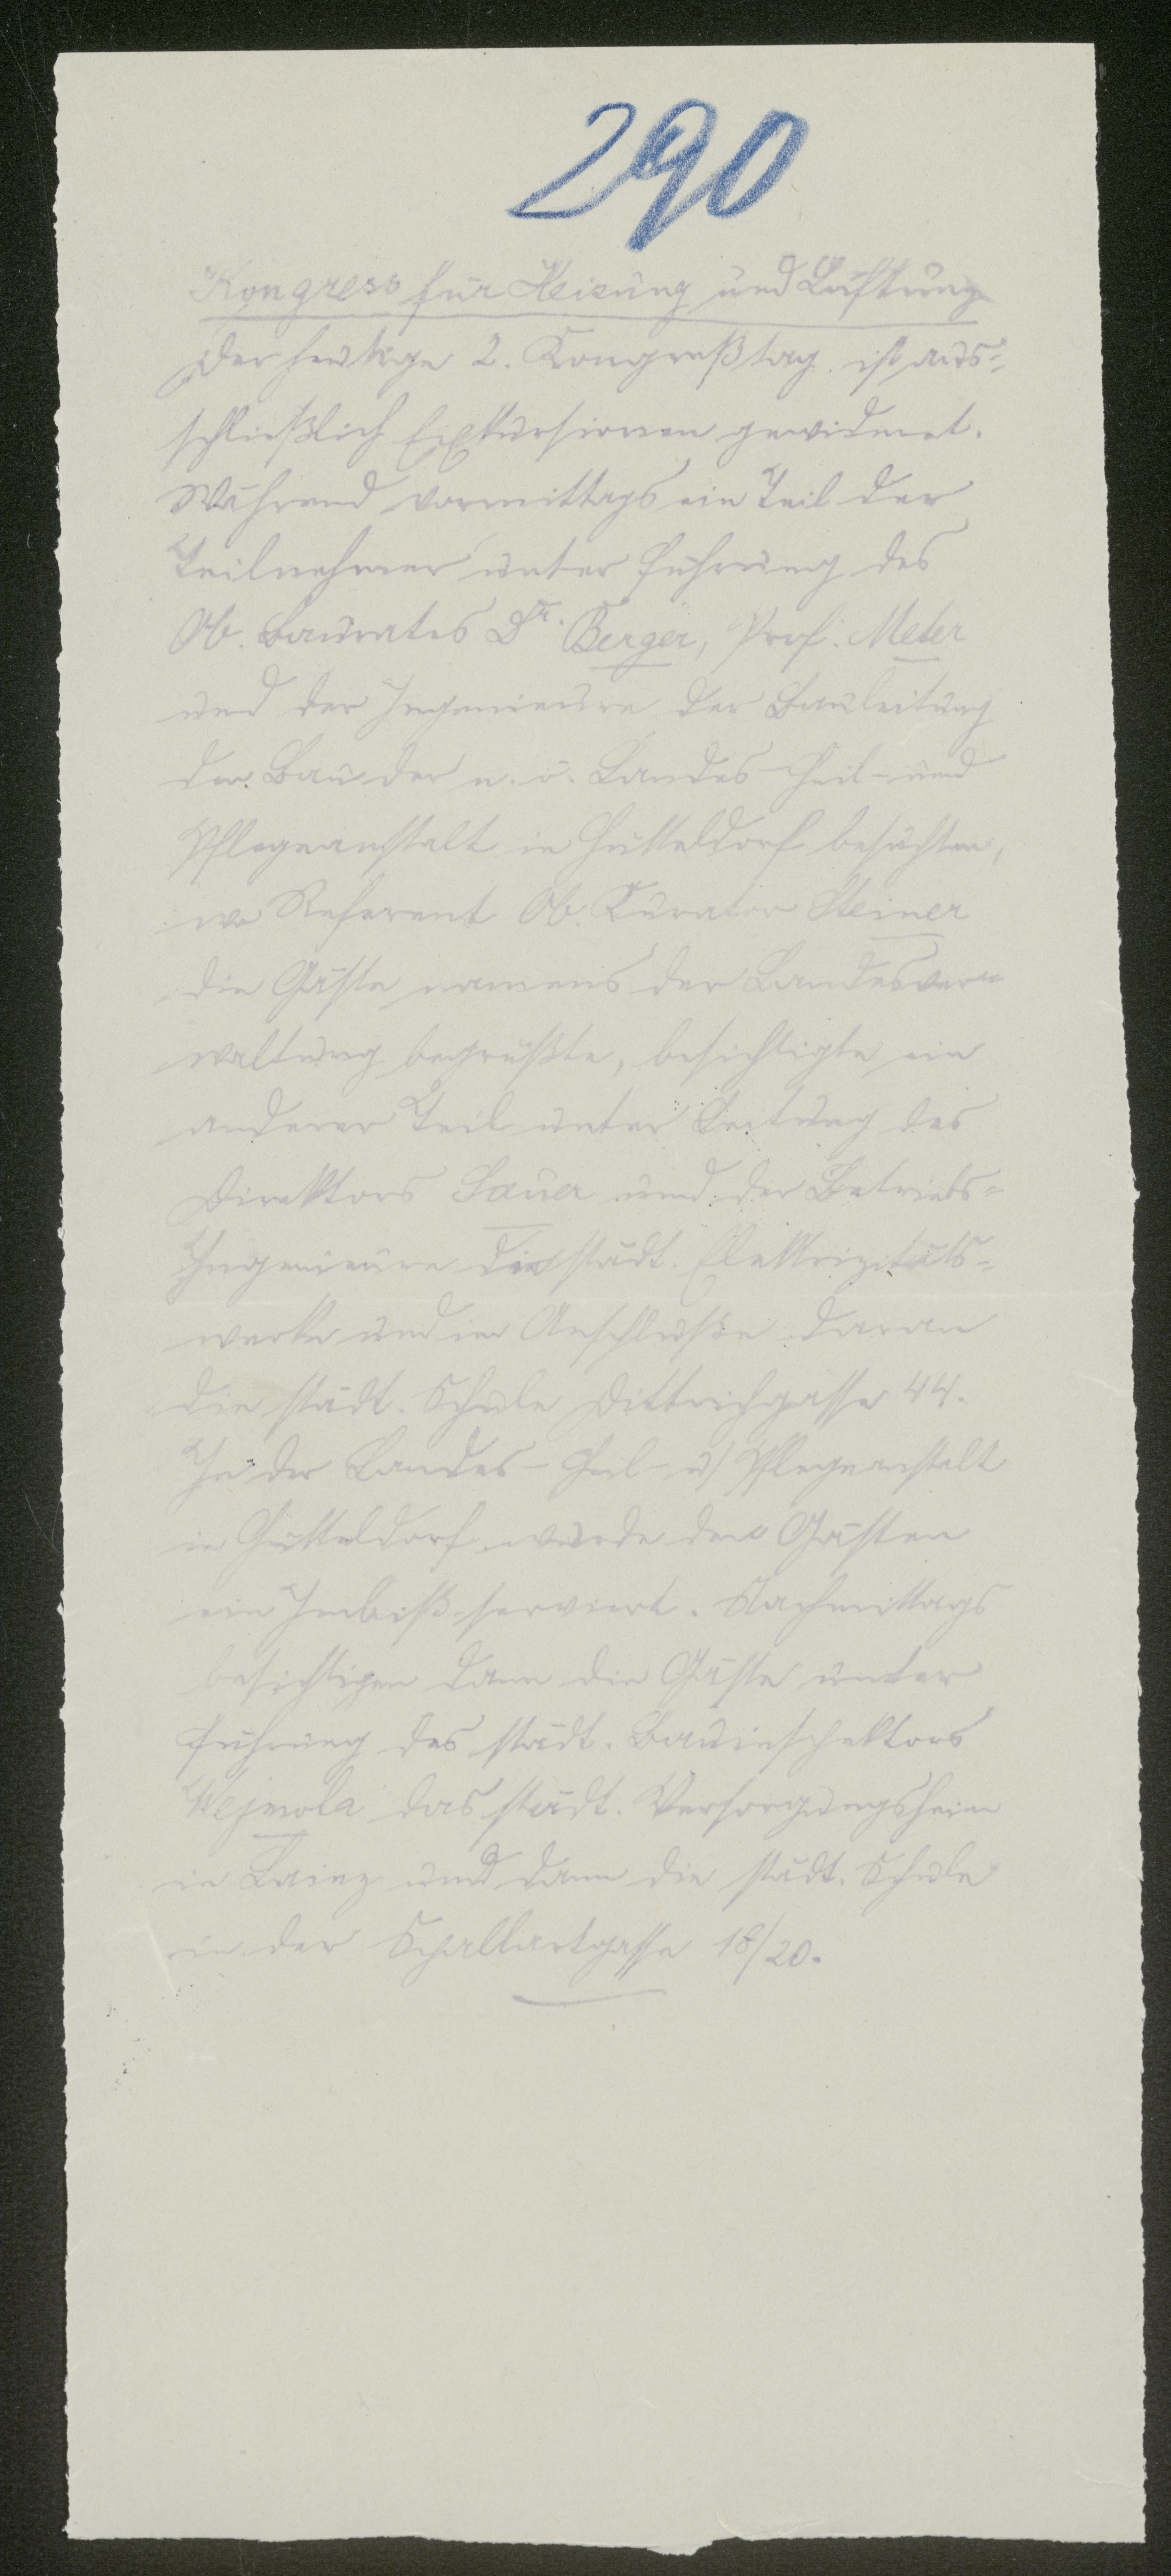 290
Kongress für Heizung und Lüftung
Der heutige 2. Kongreßtag ist aus-
schließlich Exkursionen gewidmet.
Während vormittags ein Teil der
Teilnehmer unter Führung des
Ob. Baurates Dr. Berger, Prof. Meter
und der Ingenieure der Bauleitung
den Bau der n. ö. Landes Heil- und
Pflegeanstalt in Hütteldorf besuchten,
wo Referent Ob. Kurator Steiner
die Gäste namens der Landesver-
waltung begrüßte, besichtigte ein
anderer Teil unter Leitung des
Direktors Sauer und der Betriebs-
Ingenieure die städt. Elektrizitäts-
werke und im Anschlusse daran
die städt. Schule Dittrichgasse 44.
In der Landes- Heil- u) Pflegeanstalt
in Hütteldorf wurde den Gästen
ein Imbiß serviert. Nachmittags
besichtigen dann die Gäste unter
Führung des städt. Bauinspektors
Wejmola das städt. Versorgungsheim
in Lainz und dann die städt. Schule
in der Schallertgasse 18/20.